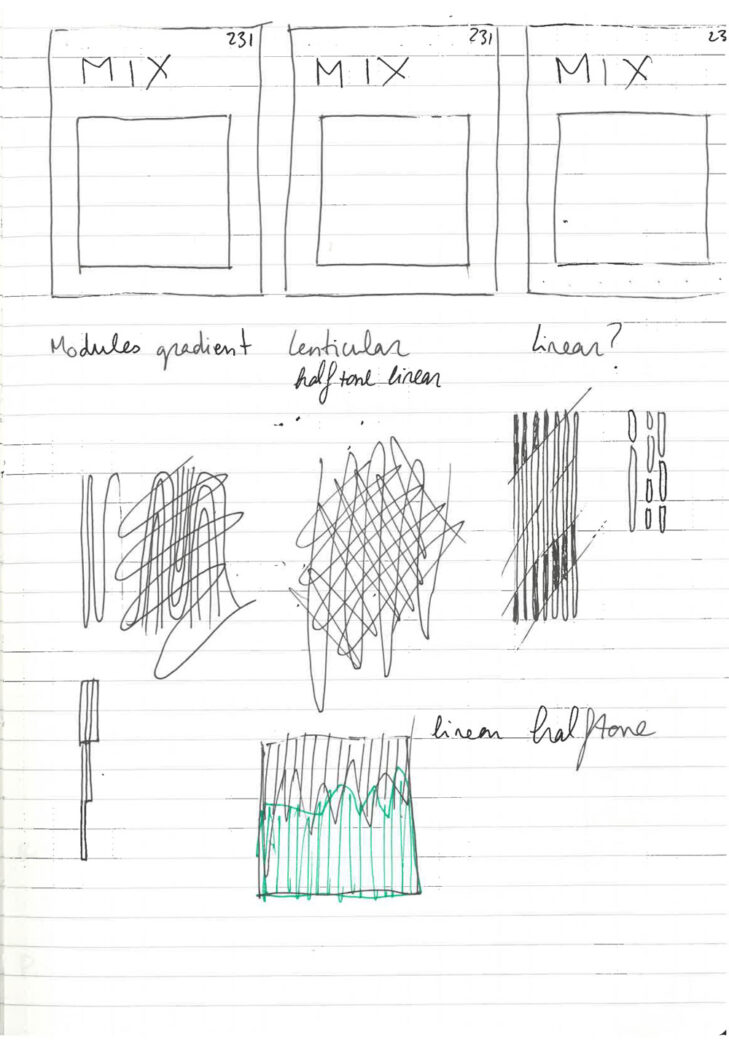 231 231 23
MIX MIX MIX
Modules gradient lenticular linear?
halftone linear
linear halftone